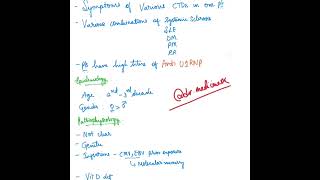 - Symptoms of Various CTDs in one Pt
- Various combinations of Systemic Sclerosis
SLE
DM
PM
RA
- Pts have high titres of Anti U1RNP
Epidemiology
Age 2nd - 3rd decade
Gender: ♀ > ♂
@dr.medicines
Pathophysiology
- Not clear
- Genetic
- Infections - CMV, EBV prior exposure
↳ molecular mimicry
- Vit D def